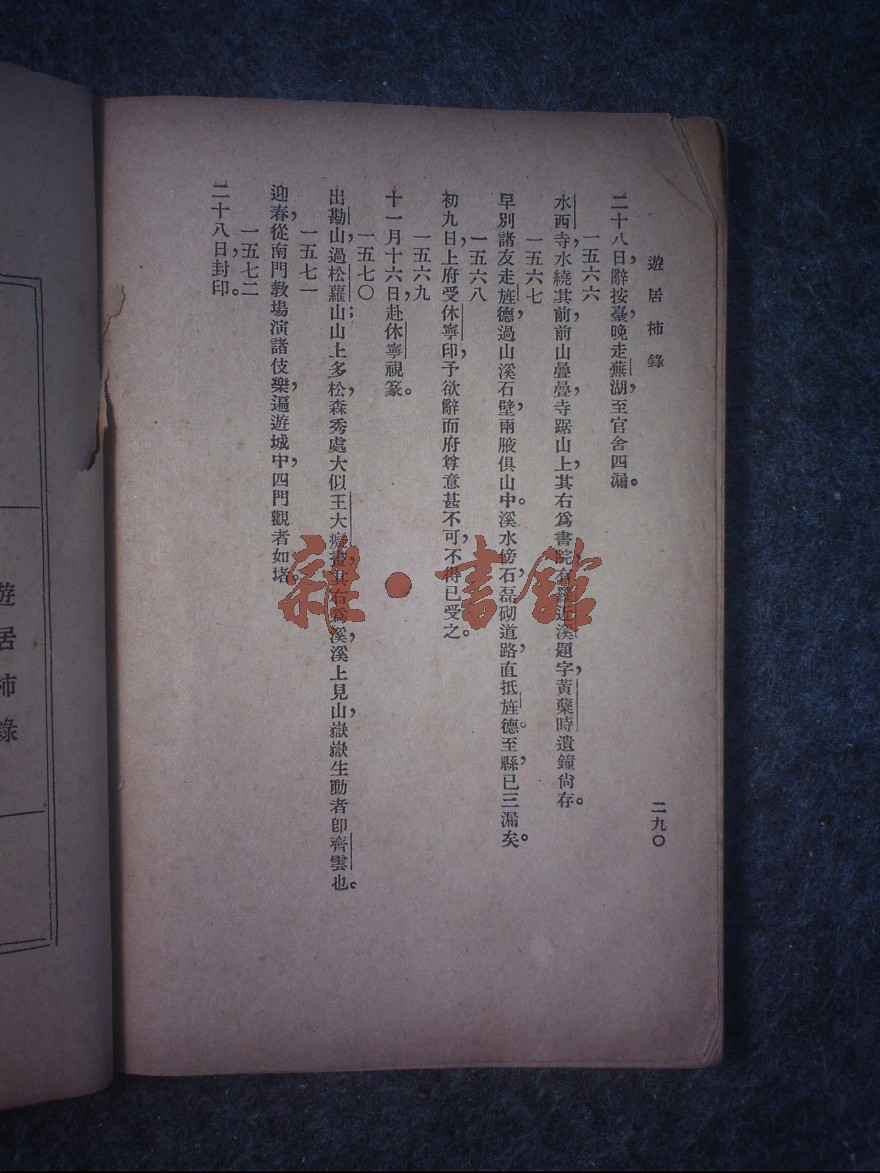 遊居杮錄
二九〇
二十八日，辭按臺，晚走蕪湖，至官舍四漏。
一五六六
水西寺，水繞其前，前山疊疊，寺踞山上，其右爲書院，有羅近溪題字，黃蘗時遺鐘尙存。
一五六七
早別諸友，走旌德，過山溪，石壁兩腋，俱山中。溪水傍石磊砌道路，直抵旌德。至縣已三漏矣。
一五六八
初九日，上府受休寧印，予欲辭，而府尊意甚不可，不得已受之。
一五六九
十一月十六日，赴休寧視篆。
一五七〇
出勘山，過松蘿山；山上多松，森秀處大似王大癡畫，其右爲溪，溪上見山，嶽嶽生動者，卽齊雲也。
一五七一
迎春，從南門敎場演諸伎樂，遍遊城中，四門觀者如堵。
一五七二
二十八日，封印。
遊居杮錄
雜·書館